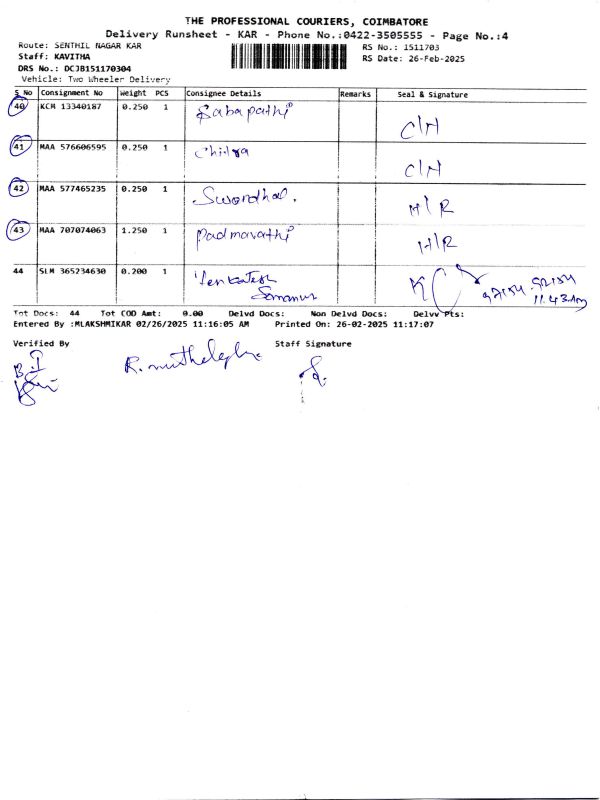 THE PROFESSIONAL COURIERS, COIMBATORE
Delivery Runsheet - KAR - Phone No.:0422-3505555 - Page No.:4
Route: SENTHIL NAGAR KAR
RS No.: 1511703
Staff: KAVITHA
RS Date: 26-Feb-2025
DRS No.: DCJB151170304
Vehicle: Two Wheeler Delivery
S No Consignment No Weight PCS Consignee Details Remarks Seal & Signature
40 KCM 13340187 0.250 1 Sabapathi C/H
41 MAA 576606595 0.250 1 Chitra C/H
42 MAA 577465235 0.250 1 H/R
43 MAA 707074063 1.250 1 Padmavathi H/R
44 SLM 365234630 0.200 1 Venkatesh KC
11.43AM
Tot Docs: 44 Tot COD Amt: 0.00 Delvd Docs: Non Delvd Docs: Delvv Pts:
Entered By :MLAKSHMIKAR 02/26/2025 11:16:05 AM Printed On: 26-02-2025 11:17:07
Verified By Staff Signature